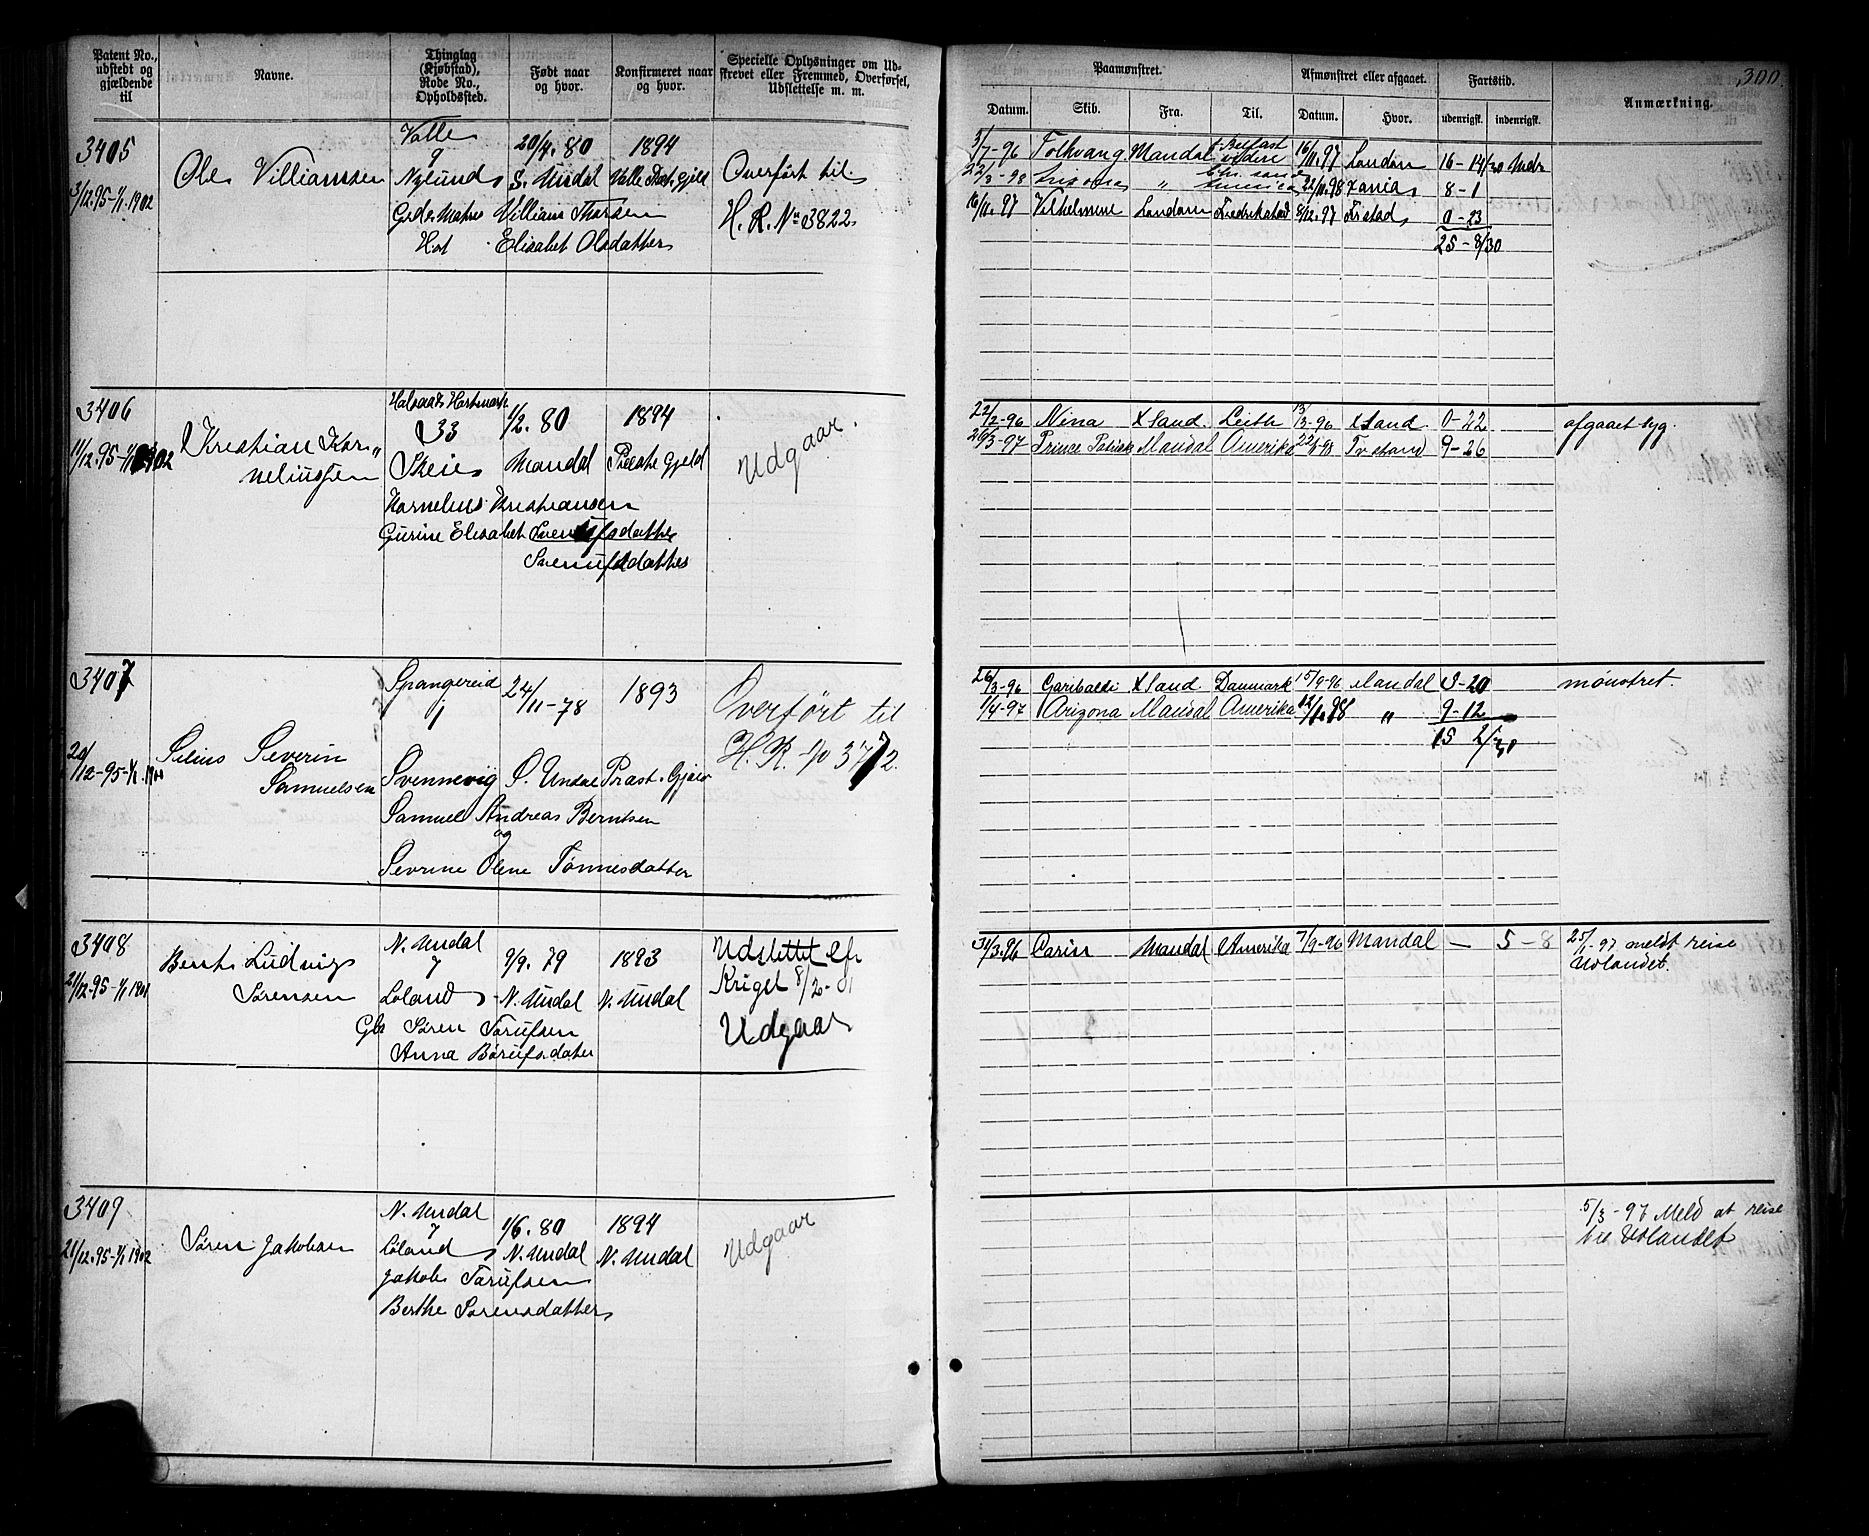 300.
Patent No., udstedt og gjældende til
Navne.
Thinglag (Kjøbstad), Rode No., Opholdssted.
Født naar og hvor.
Konfirmeret naar og hvor.
Specielle Oplysninger om Udstrevet eller Fremmed, Overførsel, Udslettelse m. m.
Paamønstret.
Afmønstret eller afgaaet.
Fartstid.
Anmærkning.
Datum. Skib. Fra. Til. Datum. Hvor. udenrigsk. indenrigsk.
3405
3/12.95-1/1.1902
Ole Villiamsen
Valle
9
Nylund
20/4.80
S. Undal
1894
Valle Præst.gjeld
Villiam Thorsen
Elisabet Olsdatter
Overført til
H. R. No 3822
5/7-96 Folkvang Mandal Belfast videre 16/11.97 London 16-14/30
22/3-98 " 22/11.98 Xania 8-1
16/11.97 Vilhelmine London Fredrikstad 8/12.97 Frstad 0-23
25-8/30
3406
11/12.95-1/1 1902
Kristian Korneliussen
Halsaa & Hartmark
33
Skeie
1/2.80
Mandal
1894
Præste Gjeld
Kornelius Kristiansen
Gurine Elisabet
Svenufsdatter
Udgaar.
22/2-96 Nina X Sand. Leith 13/3-96 X Sand. 0-22
Prince Patrick Mandal Amerika 9-26
afgaaet syg.
3407
20/12-95-1/1.19
Selius Severin
Samuelsen
Spangereid
1
Svennevig
24/11-78
S. Undal
1893
Præst. Gjeld
Samuel Andreas Berntsen
og
Sevrine Olene Tønnesdatter
Overført til
H. R. No 3772.
26/3-96 Garibaldi X Sand. Danmark 15/9-96 Mandal 5-20
1/4-97 Arizona Mandal Amerika 12/1.98 " 9-12
15 2/30
mønstret.
3408
21/12.95-1/1 1901
Bernt Ludvig
Sørensen
N. Undal
7
Løland
9/9.79
N. Undal
1893
N. Undal
Søren Tarufsen
Anna Børufsdatter
Udslettet ef.
Kriget 8/2-01
Udgaar
31/3.96 Carin Mandal Amerika 7/9-96 Mandal — 5-8
25/1-97 meldt reise
Udlandet.
3409
21/12.95-1/1 1902
Søren Jakobsen
N. Undal
7
Løland
1/6.80
N. Undal
1894
N. Undal
Jakob Tarufsen
Berthe Sørensdatter
Udgaar
5/3-97 Meld at reise
til Udlandet